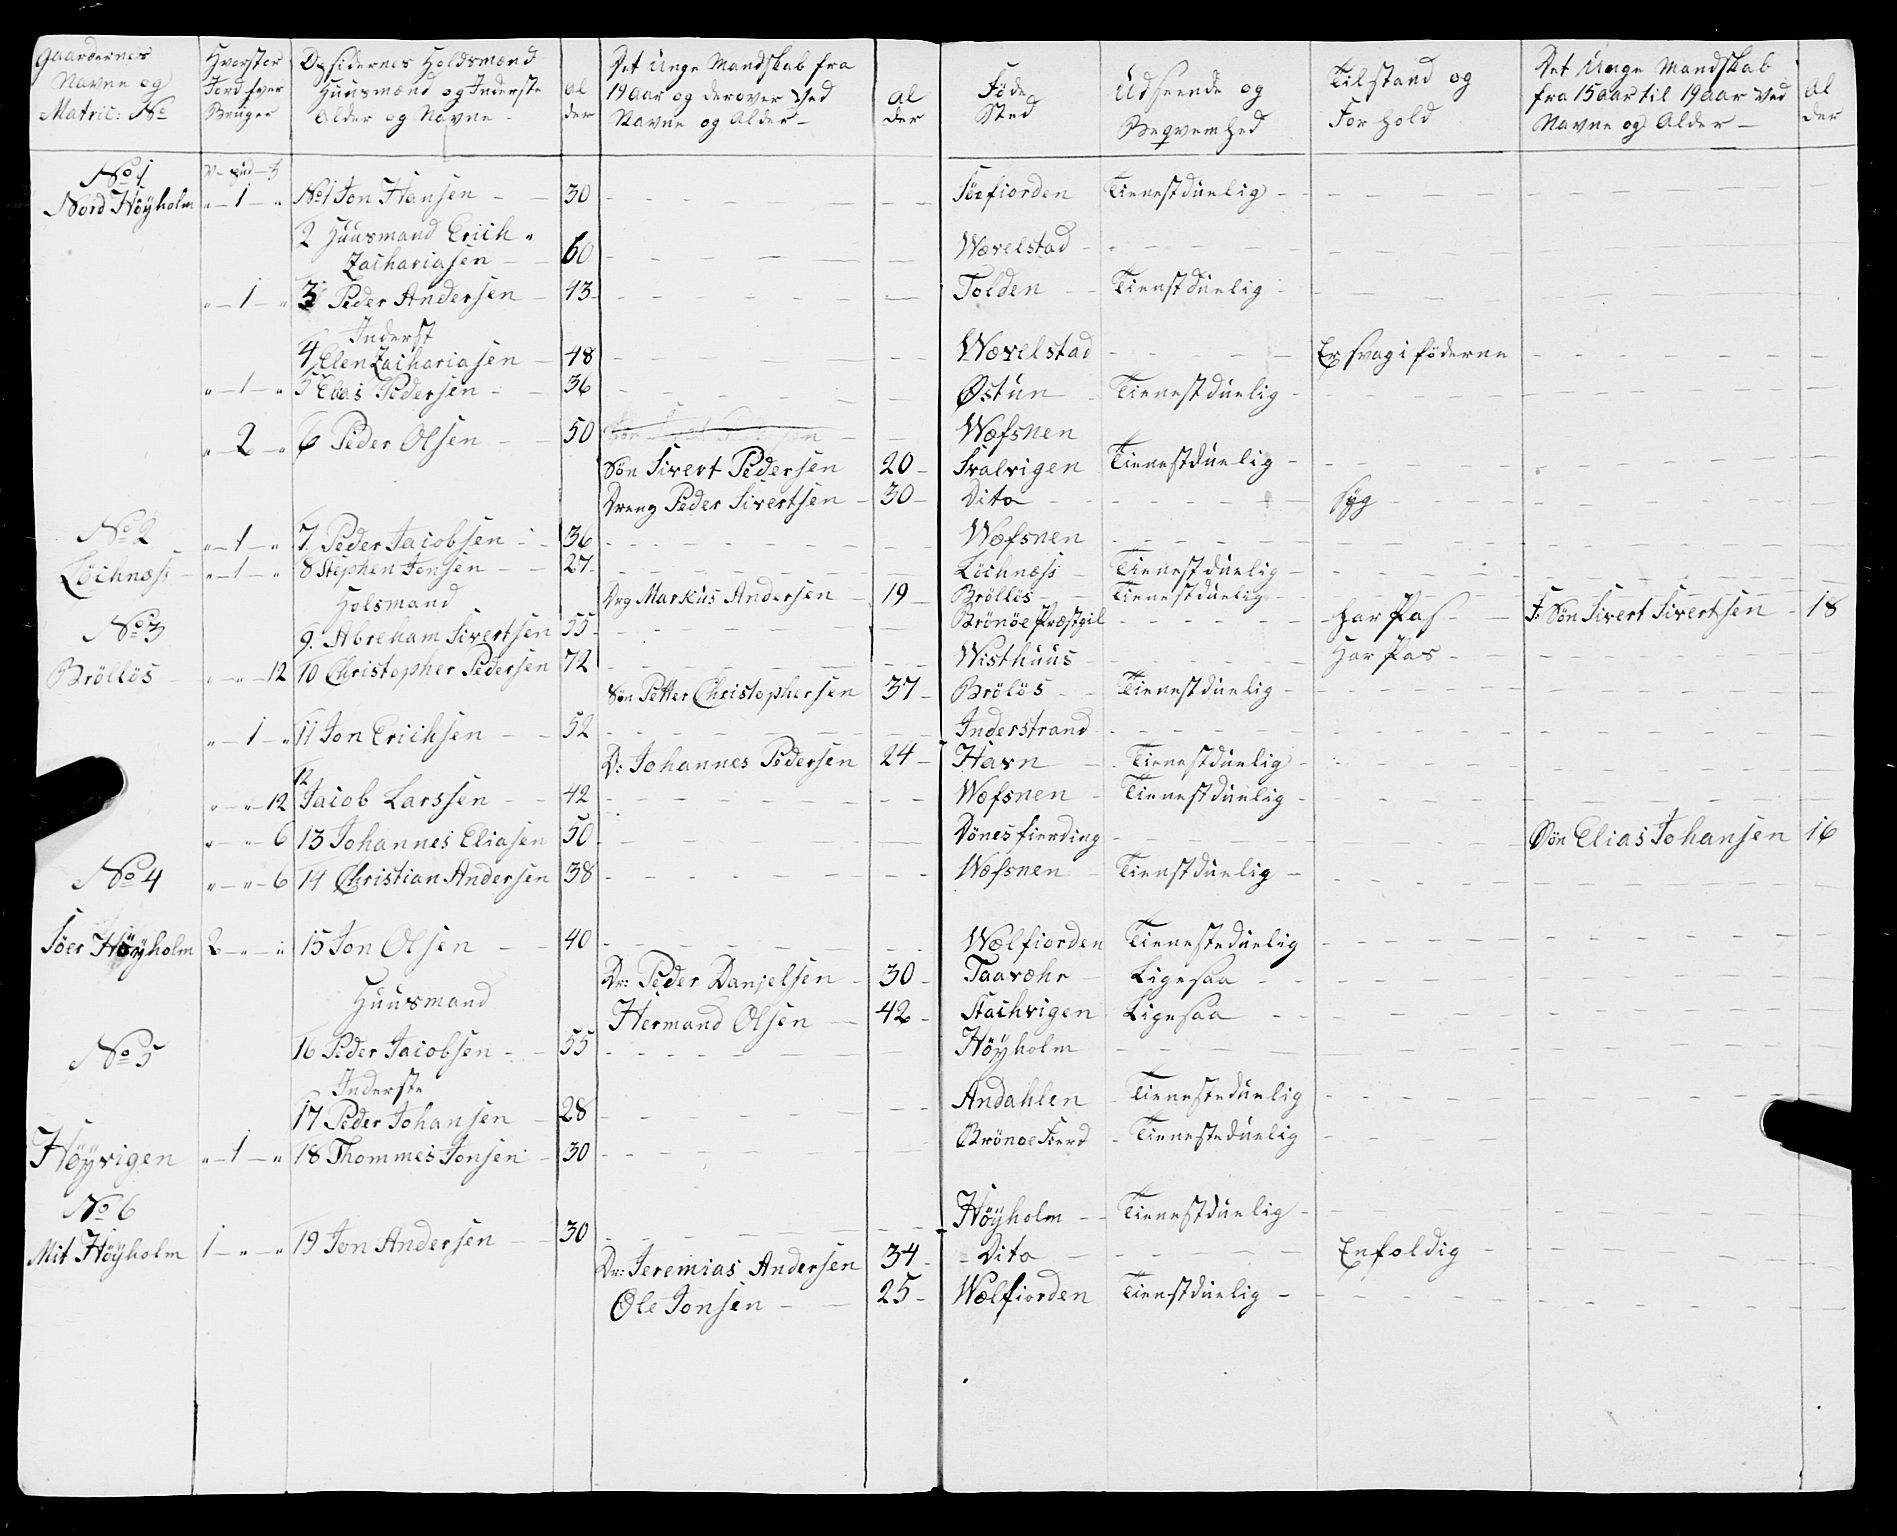 Gaardernes Navne og Matric: No | Hvorstor Jord hver Bruger | Opsidernes Holdsmænd Huusmænd og Inderste Alder og Navne | al der | Det Unge Mandskab fra 19 Aar og derover Ved Navne og Alder | al der | Føde Sted | Udseende og Beqvemhed | Tilstand og Forhold | Det Unge Mandskab fra 15 aar til 19 aar Ved Navne og Alder | al der
No 1
Nord Höÿholm „ – 1 – „ No 1 Jon Hansen 30 Söefiorden Tienestduelig
2 Huusmand Erich Zachariasen 60 Wævelstad
„ – 1 – „ 3 Peder Andersen 43 Tolden Tienstduelig
Inderst
4 Elen Zachariasen 48 Wævelstad Er svag i föderne
„ – 1 – „ 5 Elias Pedersen 36 Østun Tienestduelig
„ – 2 – „ 6 Peder Olsen 50 Wæfsnen
Sön Sivert Pedersen 20 Svalvigen Tienestduelig
Dreng Peder Sivertsen 30 Dito Syg
No 2
„ – 1 – „ 7 Peder Jacobsen 36 Wæfsnen
Löchnæss „ – 1 – „ 8 Stephen Jonsen 27 Löchnæss Tienestduelig
Drg Markus Andersen 19 Bröllös Tienestduelig
Holsmand
No 3
9. Abreham Sivertsen 55 Brönöe Præstgil Har Pas S: Sön Sivert Sivertsen 18
Bröllös „ – „ – 12 10 Christopher Pedersen 72 Wisthuus Har Pas
Sön Petter Christophersen 37 Brölös Tienestduelig
„ – 1 – „ 11 Jon Erichsen 52 Inderstrand
D: Johannes Pedersen 24 Havn Tienestduelig
„ – „ – 12 12 Jacob Larssen 42 Wæfsnen Tienestduelig
„ – „ – 6 13 Johannes Eliasen 50 Dönesfierding Sön Elias Johansen 16
No 4
„ – „ – 6 14 Christian Andersen 38 Wæfsnen Tienestduelig
Söer Höÿholm 2 – „ – „ 15 Jon Olsen 40 Wælfiorden Tienesteduelig
Dr: Peder Danjelsen 30 Taaræhr Ligesaa
Huusmand
Hermand Olsen 42 Stachvigen Ligesaa
No 5
16 Peder Jacobsen 55 Höÿholm
Inderste
17 Peder Johansen 28 Andahlen Tienesteduelig
Höÿvigen „ – 1 – „ 18 Thommes Jonsen 30 Brönoe Fierd Tienesteduelig
No 6
Mit Höÿholm 1 – „ – „ 19 Jon Andersen 30 Höÿholm Tienestduelig
Dr: Jeremias Andersen 34 Dito Enfoldig
Ole Jonsen 25 Wælfiorden Tienstduelig